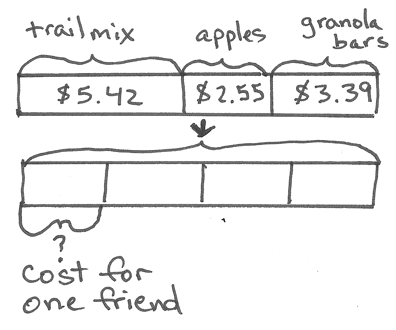 trail mix
apples
granola
bars
$5.42
$2.55
$3.39
n
?
cost for
one friend